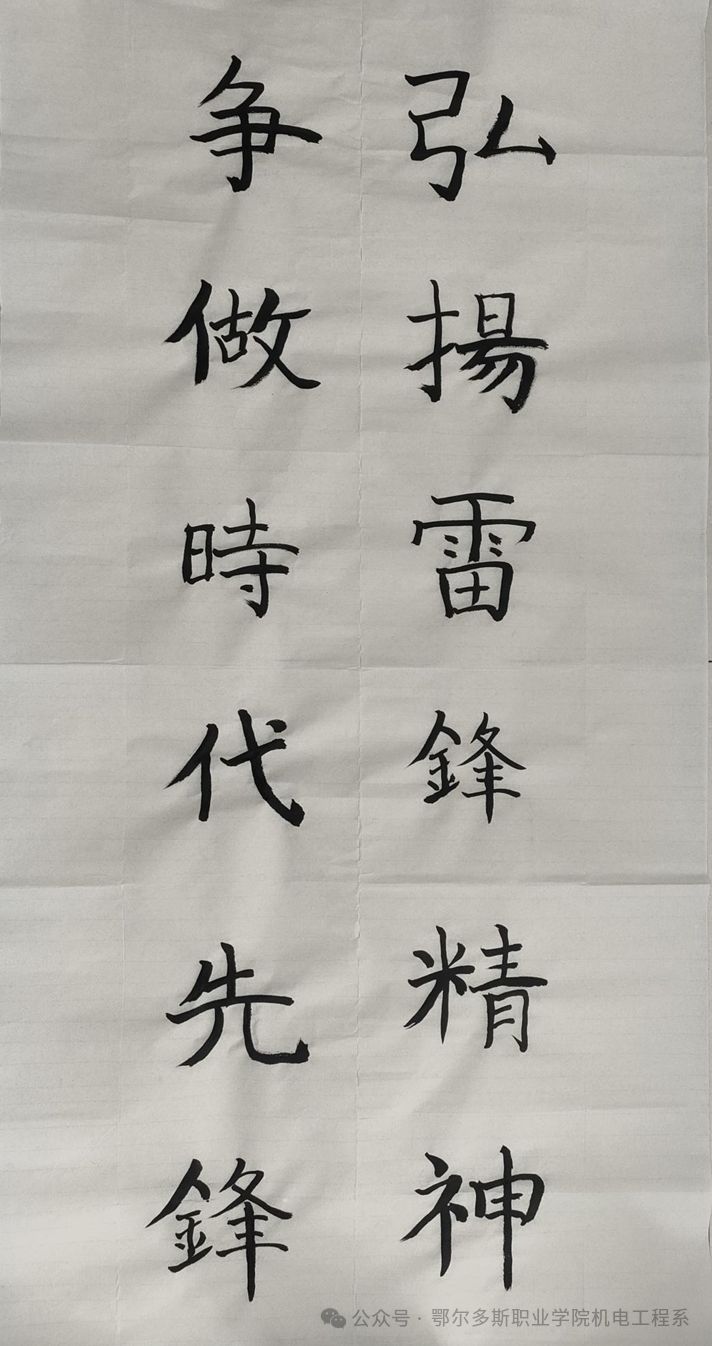 弘揚雷鋒精神
争做時代先鋒
公众号·鄂尔多斯职业学院机电工程系